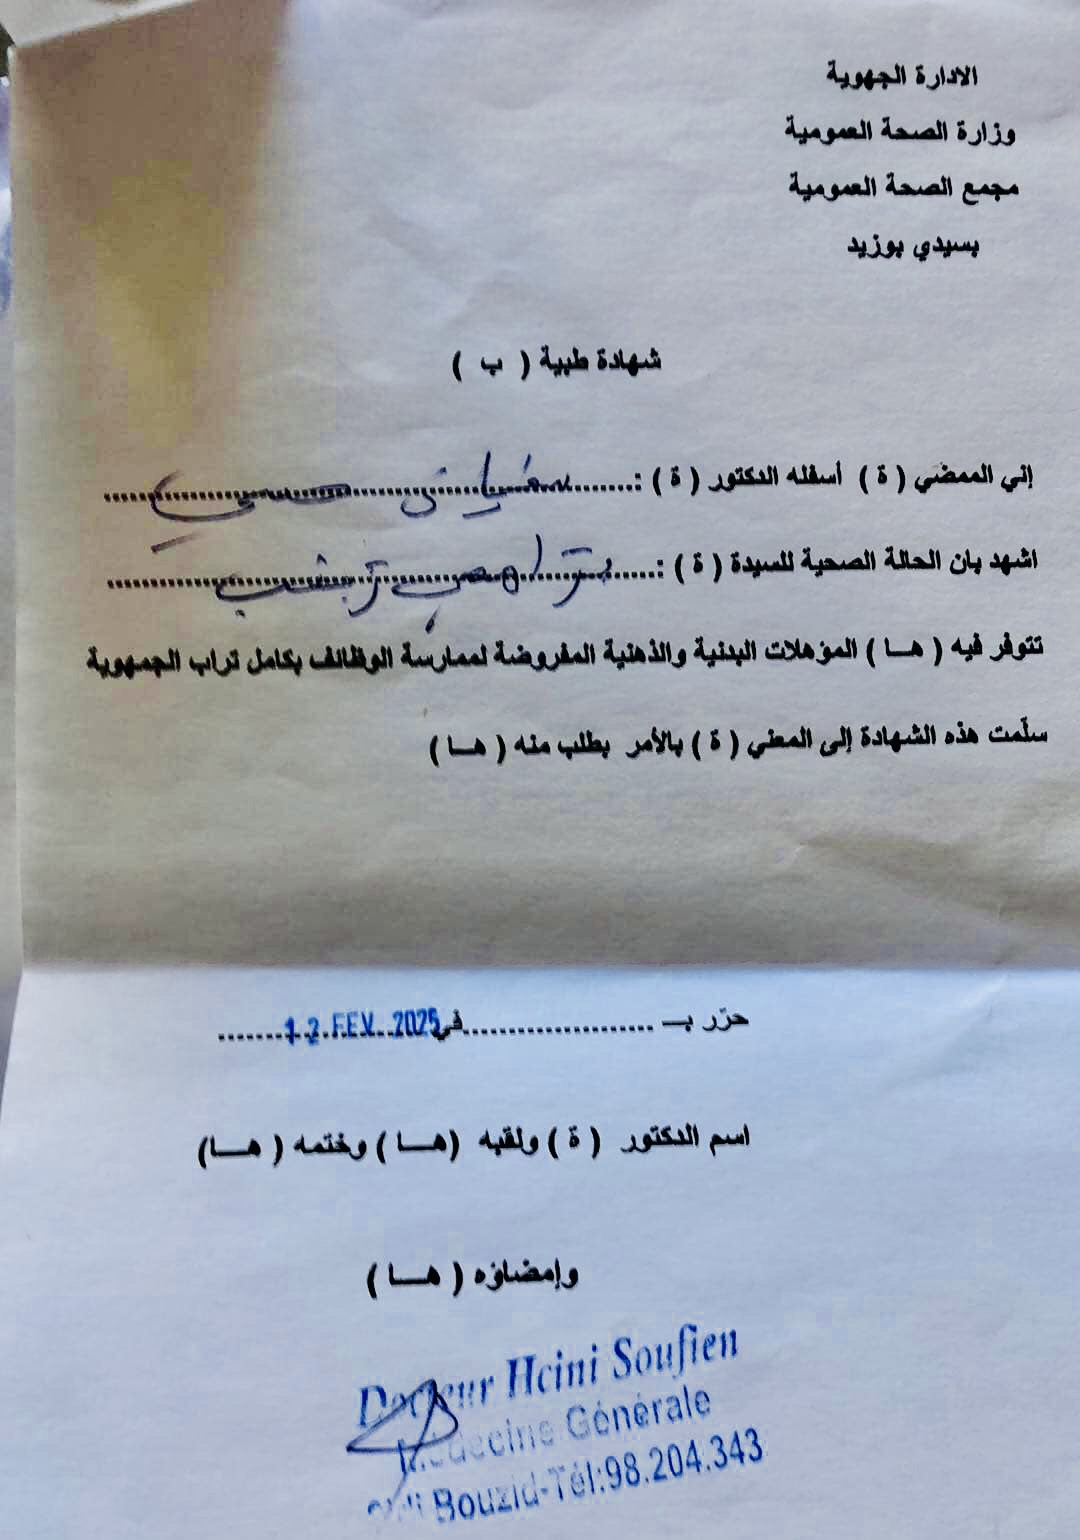 الادارة الجهوية
وزارة الصحة العمومية
مجمع الصحة العمومية
بسيدي بوزيد
شهادة طبية ( ب )
إني الممضي ( ة ) أسفله الدكتور ( ة ) :....... سفيان حسني
اشهد بان الحالة الصحية للسيدة ( ة ) :......
تتوفر فيه ( هـا ) المؤهلات البدنية والذهنية المفروضة لممارسة الوظائف بكامل تراب الجمهوية
سلّمت هذه الشهادة إلى المعني ( ة ) بالأمر بطلب منه ( هـا )
حرّر بـ .....................في 12 FEV. 2025
اسم الدكتور ( ة ) ولقبه (هـا ) وختمه ( هـا)
وإمضاؤه ( هـا )
Docteur Hcini Soufien
Médecine Générale
Sidi Bouzid-Tél:98.204.343